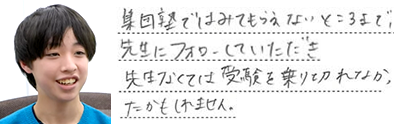 集団塾ではみてもらえないところまで、
先生にフォローしていただき
先生なくては受験を乗り切れなか、
たかもしれません。